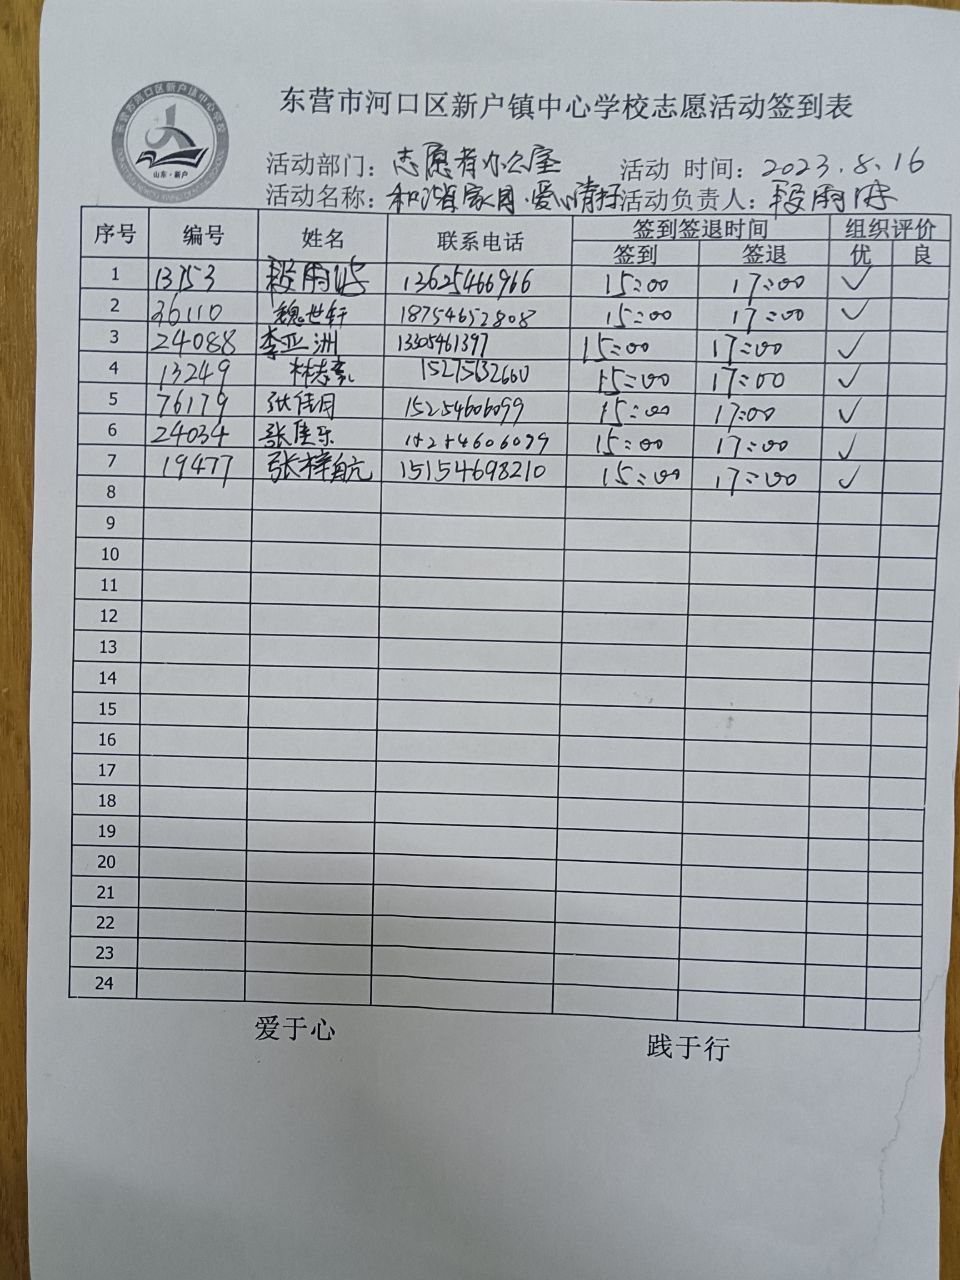 东营市河口区新户镇中心学校志愿活动签到表
山东·新户
活动部门：志愿者办公室 活动 时间：2023.8.16
活动名称：和谐家园·爱心清扫 活动负责人：段雨
序号 编号 姓名 联系电话 签到签退时间 组织评价
签到 签退 优 良
1 13753 段雨 13625466966 15:00 17:00 ✓
2 36110 魏世轩 18754652808 15:00 17:00 ✓
3 24088 李亚洲 13305461397 15:00 17:00 ✓
4 13249 林志豪 15275632660 15:00 17:00 ✓
5 76179 张佳月 15254606099 15:00 17:00 ✓
6 24034 张佳乐 15254606099 15:00 17:00 ✓
7 19477 张梓航 15154698210 15:00 17:00 ✓
8
9
10
11
12
13
14
15
16
17
18
19
20
21
22
23
24
爱于心 践于行